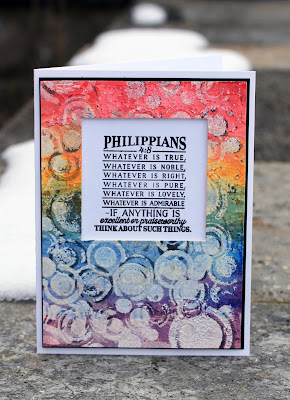 PHILIPPIANS
4:8
WHATEVER IS TRUE,
WHATEVER IS NOBLE,
WHATEVER IS RIGHT,
WHATEVER IS PURE,
WHATEVER IS LOVELY,
WHATEVER IS ADMIRABLE
–IF ANYTHING IS
excellent or praiseworthy
THINK ABOUT SUCH THINGS.